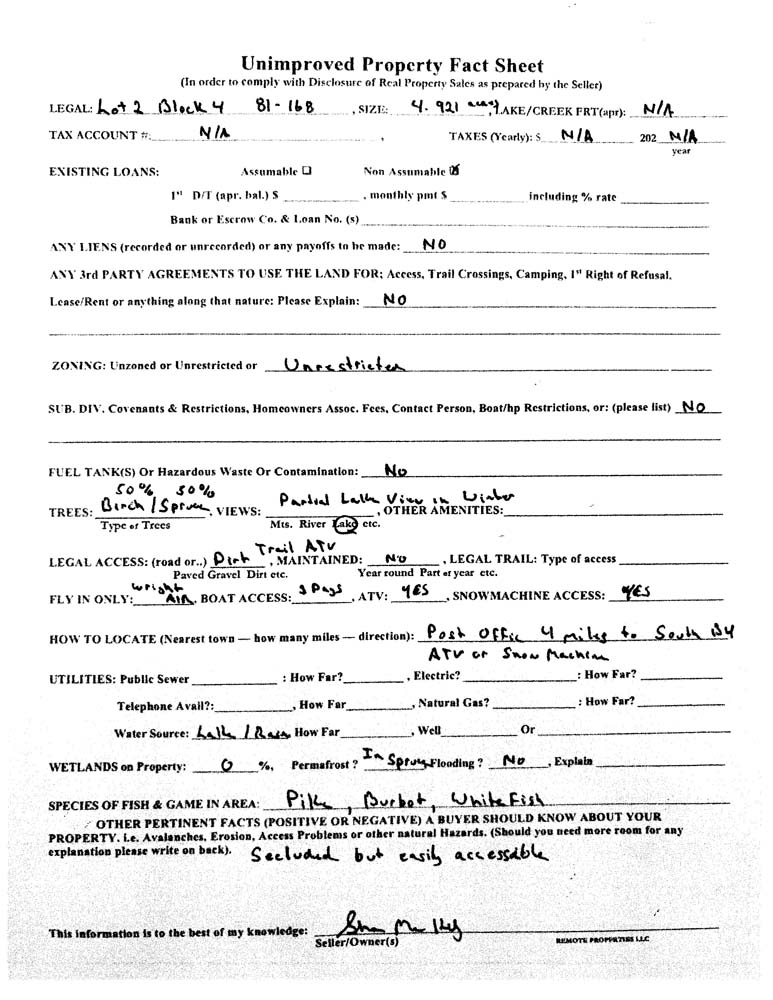 Unimproved Property Fact Sheet
(In order to comply with Disclosure of Real Property Sales as prepared by the Seller)
LEGAL: Lot 2 Block 4 81-168, SIZE: 4.921 acres, LAKE/CREEK FRT(apr): N/A
TAX ACCOUNT #: N/A, TAXES (Yearly): $ N/A 202 N/A
year
EXISTING LOANS: Assumable ☐ Non Assumable ☒
1st D/T (apr. bal.) $ , monthly pmt $ including % rate
Bank or Escrow Co. & Loan No. (s)
ANY LIENS (recorded or unrecorded) or any payoffs to be made: NO
ANY 3rd PARTY AGREEMENTS TO USE THE LAND FOR; Access, Trail Crossings, Camping, 1st Right of Refusal,
Lease/Rent or anything along that nature: Please Explain: NO
ZONING: Unzoned or Unrestricted or Unrestricted
SUB. DIV. Covenants & Restrictions, Homeowners Assoc. Fees, Contact Person, Boat/hp Restrictions, or: (please list) NO
FUEL TANK(S) Or Hazardous Waste Or Contamination: No
50% 50%
TREES: Birch / Spruce, VIEWS: Partial Lake View in Winter, OTHER AMENITIES:
Type of Trees Mts. River Lake etc.
LEGAL ACCESS: (road or..) Dirt Trail ATV, MAINTAINED: No, LEGAL TRAIL: Type of access
Paved Gravel Dirt etc. Year round Part of year etc.
FLY IN ONLY: Wright AIR, BOAT ACCESS: 3 Days, ATV: YES, SNOWMACHINE ACCESS: YES
HOW TO LOCATE (Nearest town — how many miles — direction): Post Offic 4 miles to South By
ATV or Snow Machine
UTILITIES: Public Sewer : How Far? , Electric? : How Far?
Telephone Avail?: , How Far , Natural Gas? : How Far?
Water Source: Lake / Rain How Far , Well Or
WETLANDS on Property: 0 %, Permafrost ? In Spruce Flooding ? No, Explain
SPECIES OF FISH & GAME IN AREA: Pike, Burbot, White Fish
OTHER PERTINENT FACTS (POSITIVE OR NEGATIVE) A BUYER SHOULD KNOW ABOUT YOUR
PROPERTY. i.e. Avalanches, Erosion, Access Problems or other natural Hazards. (Should you need more room for any
explanation please write on back). Secluded but easily accessable
This information is to the best of my knowledge:
Seller/Owner(s) REMOTE PROPERTIES LLC